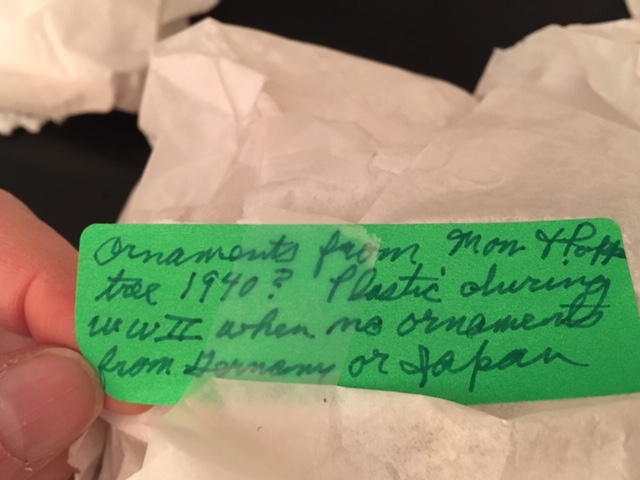 Ornaments from Mom &
tree 1940? Plastic during
WWII when no ornaments
from Germany or Japan